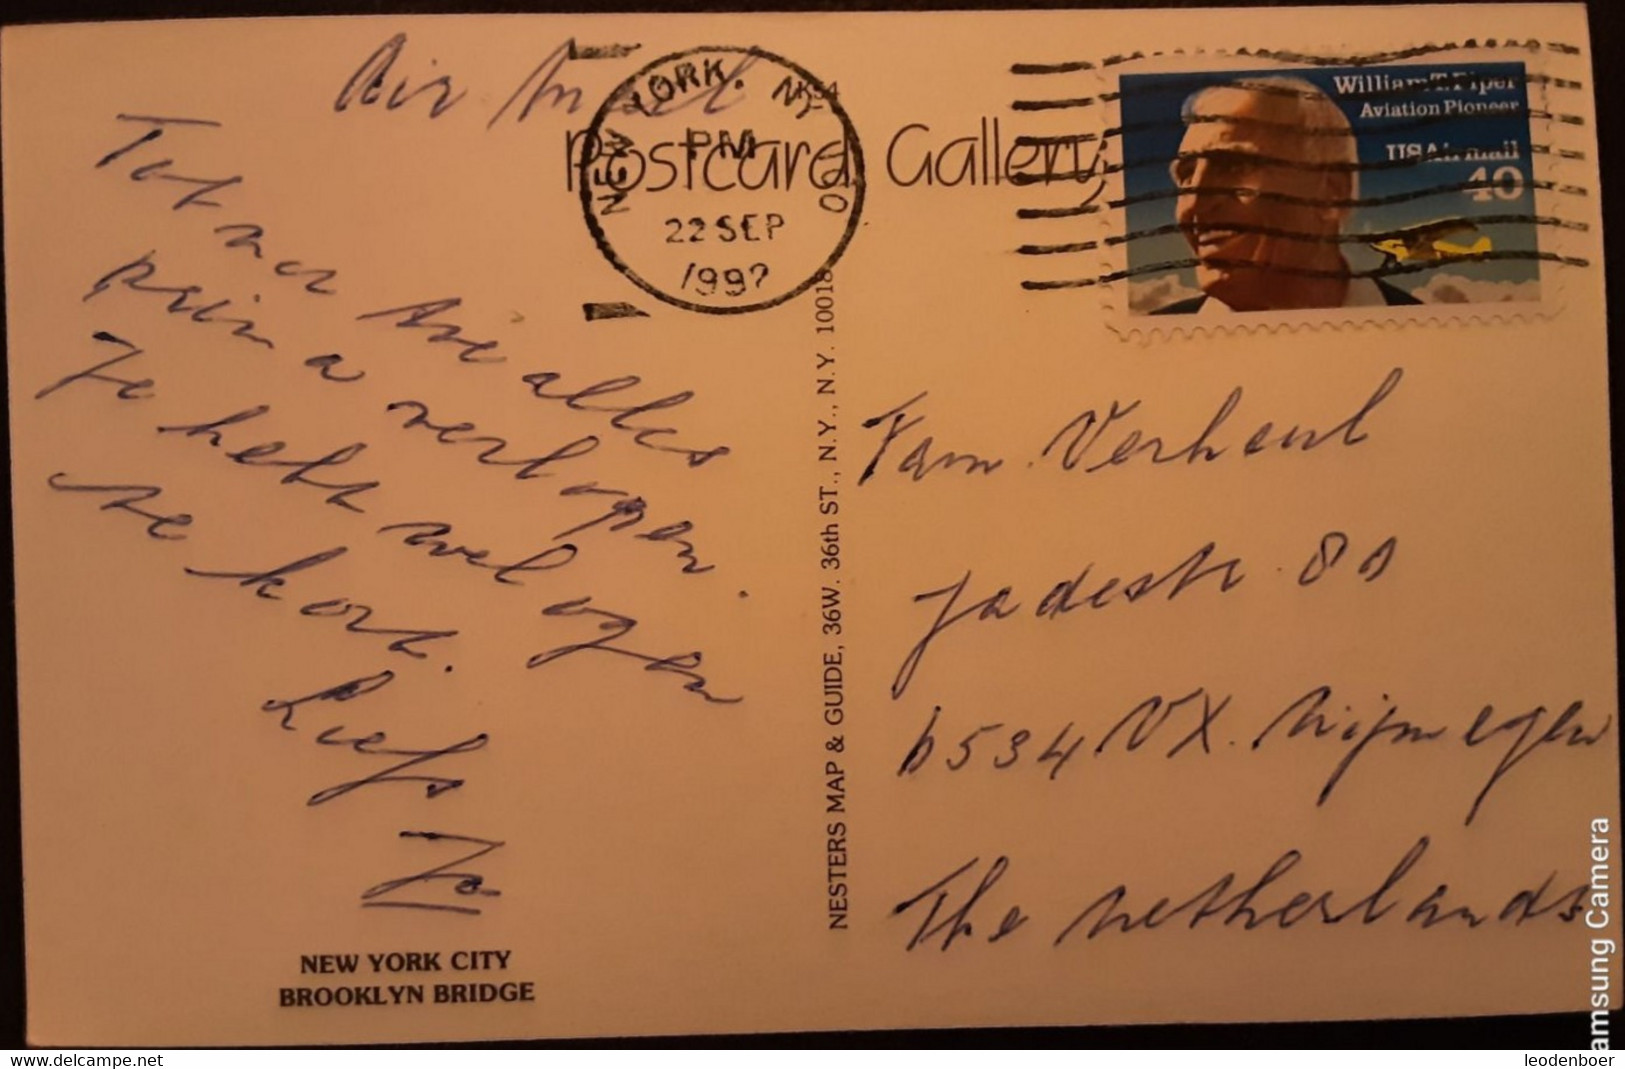 Air Mail
Tot nu toe alles
prima verlopen.
Je hebt wel ogen
te kort.
Liefs
Jo
NEW YORK CITY
BROOKLYN BRIDGE
NEW YORK, NY
PM
22 SEP
1992
Postcard Gallery
NESTERS MAP & GUIDE, 36W. 36th ST., N.Y., N.Y. 10018
William T. Piper
Aviation Pioneer
USAirmail
40
Fam. Verheul
Jadestr. 80
6534 VX. Nijmegen
The Netherlands
amsung Camera
www.delcampe.net
leodenboer